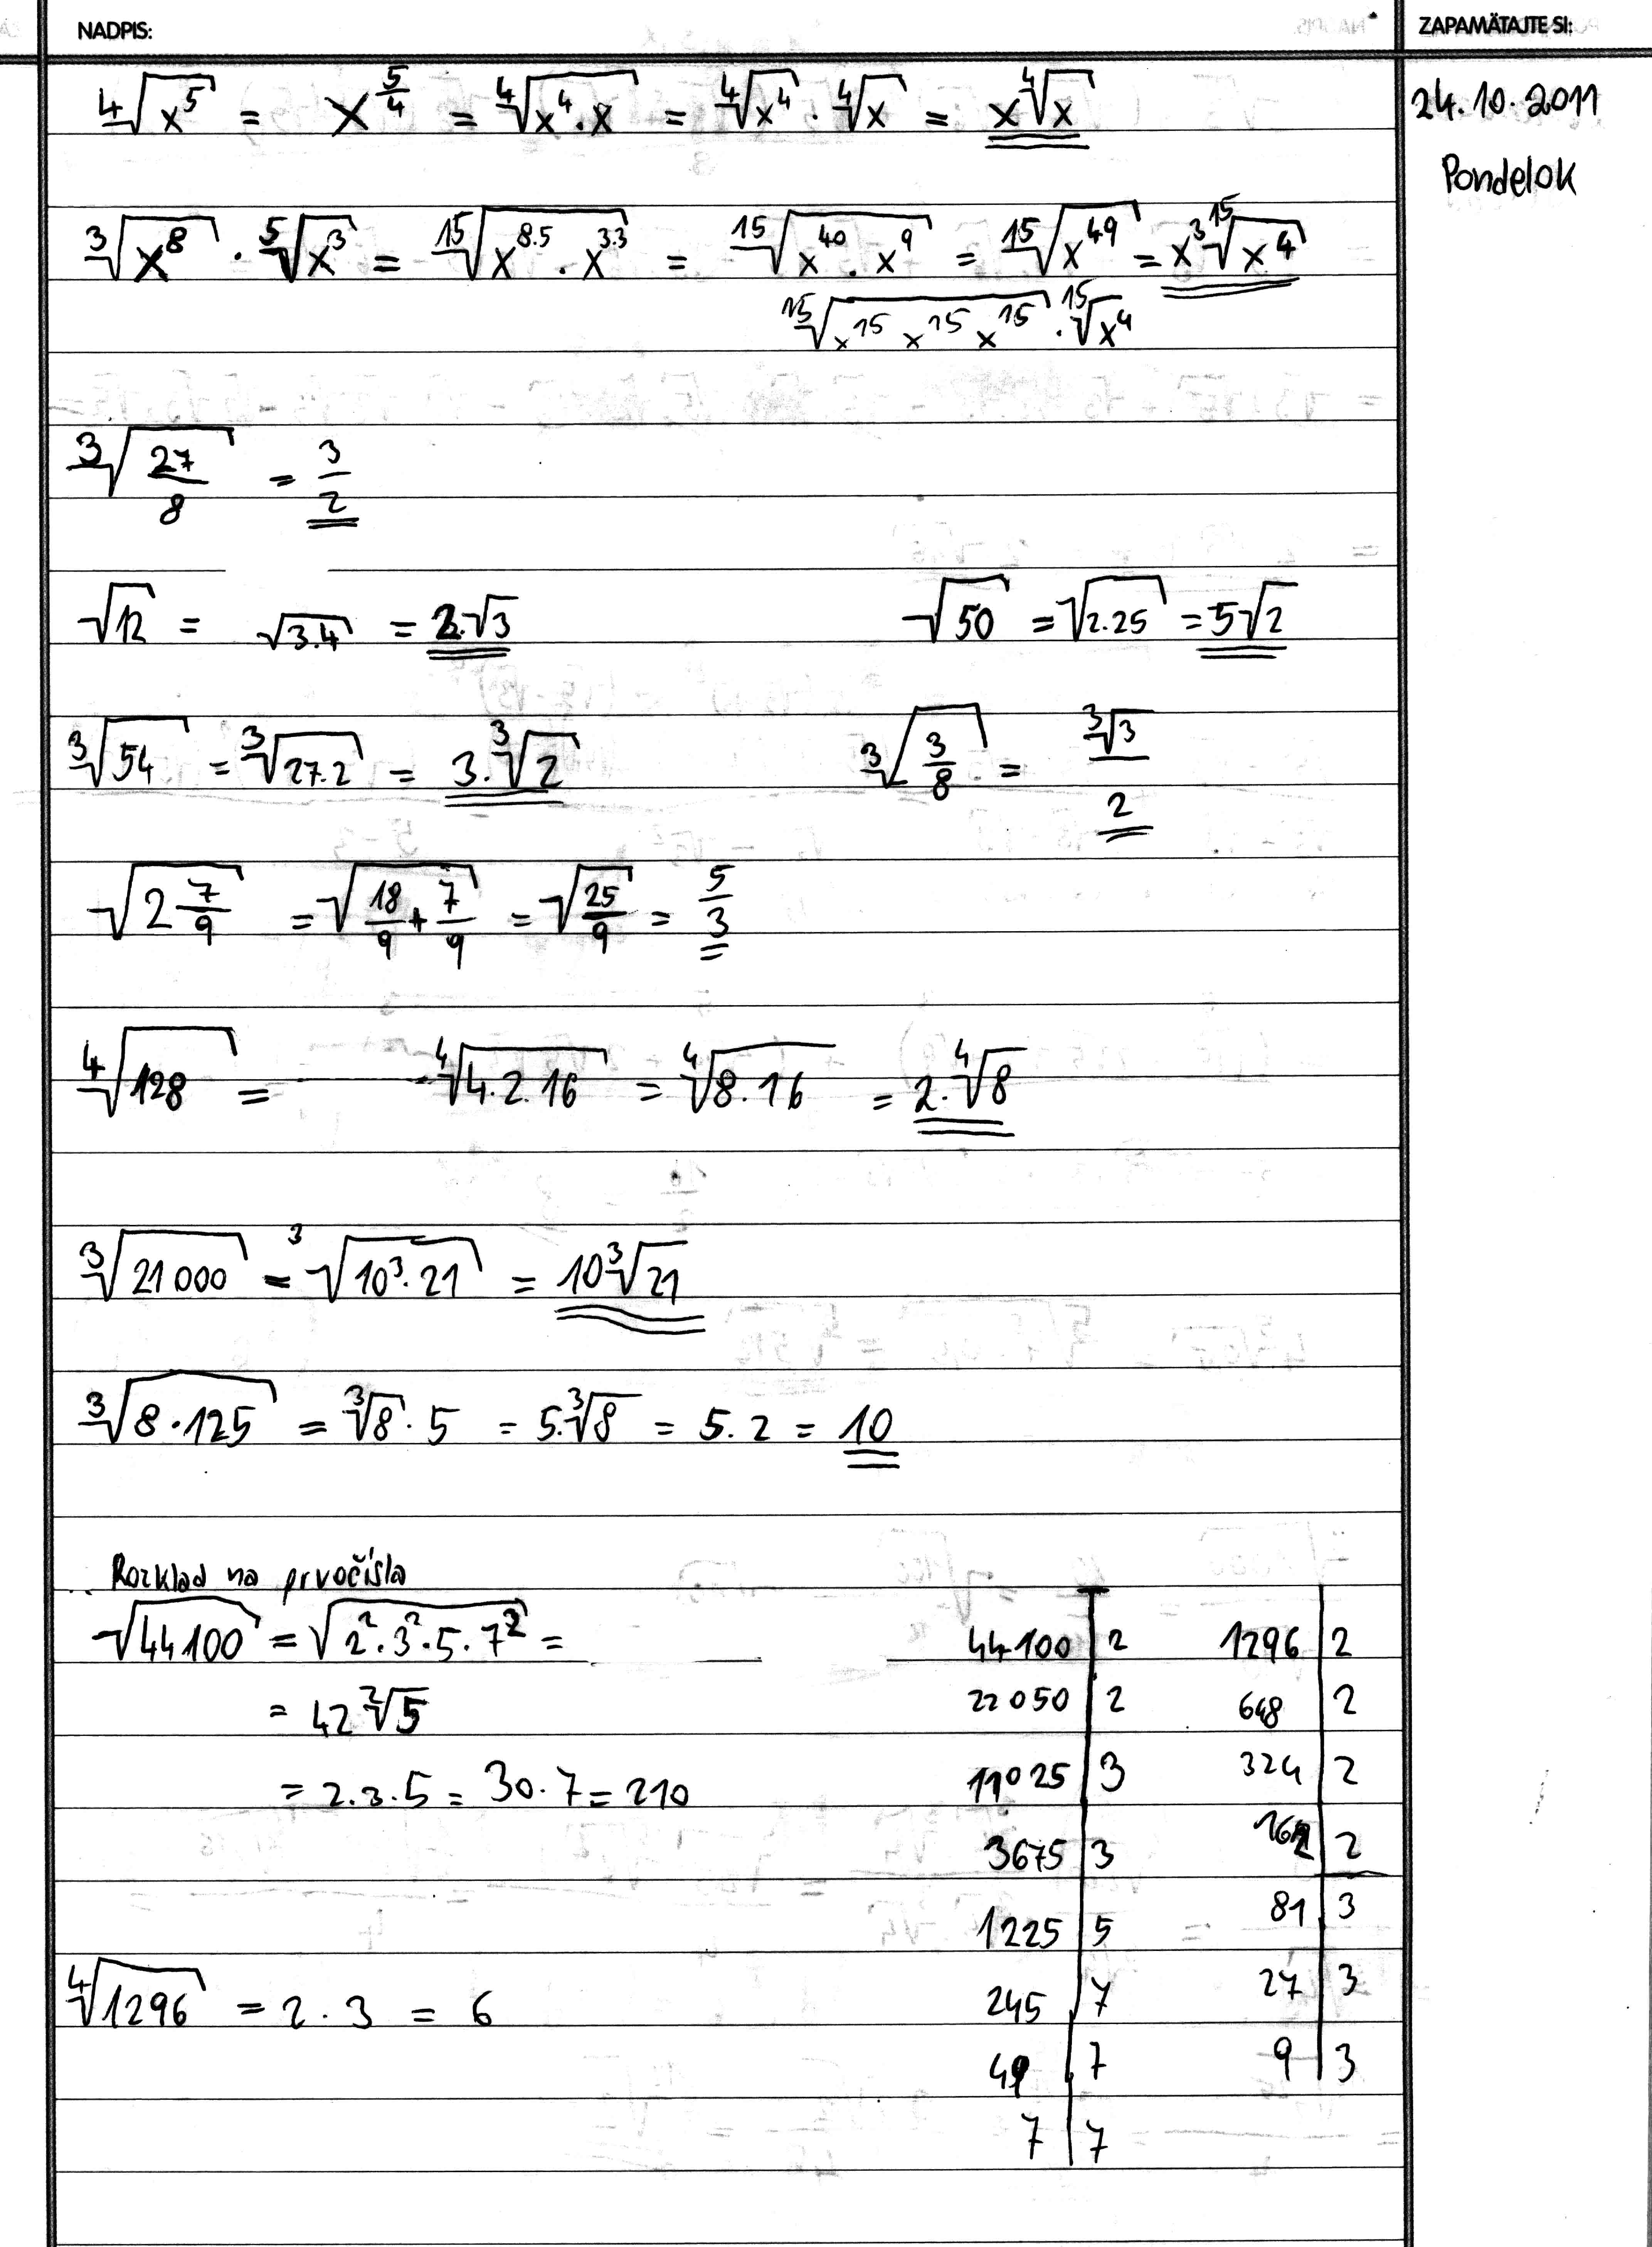 NADPIS:
ZAPAMÄTAJTE SI:
24.10.2011
Pondelok
⁴√(x⁵) = x^(5/4) = ⁴√(x⁴.x) = ⁴√(x⁴) . ⁴√x = x⁴√x
³√(x⁸) . ⁵√(x³) = ¹⁵√(x^(8.5) . x^(3.3)) = ¹⁵√(x⁴⁰ . x⁹) = ¹⁵√(x⁴⁹) = x³ ¹⁵√(x⁴)
¹⁵√(x¹⁵ x¹⁵ x¹⁵) . ¹⁵√(x⁴)
³√(27/8) = 3/2
√12 = √(3.4) = 2.√3
√50 = √(2.25) = 5√2
³√54 = ³√(27.2) = 3.³√2
³√(3/8) = ³√3/2
√(2 7/9) = √(18/9 + 7/9) = √(25/9) = 5/3
⁴√128 = ⁴√(4.2.16) = ⁴√(8.16) = 2.⁴√8
³√(21 000) = ³√(10³.21) = 10³√21
³√(8.125) = ³√8 . 5 = 5.³√8 = 5.2 = 10
Rozklad na prvočísla
√44100 = √(2².3².5.7²) =
= 42 ²√5
= 2.3.5 = 30.7 = 210
⁴√1296 = 2 . 3 = 6
44100 | 2
22050 | 2
11025 | 3
3675 | 3
1225 | 5
245 | 7
49 | 7
7 | 7
1296 | 2
648 | 2
324 | 2
162 | 2
81 | 3
27 | 3
9 | 3